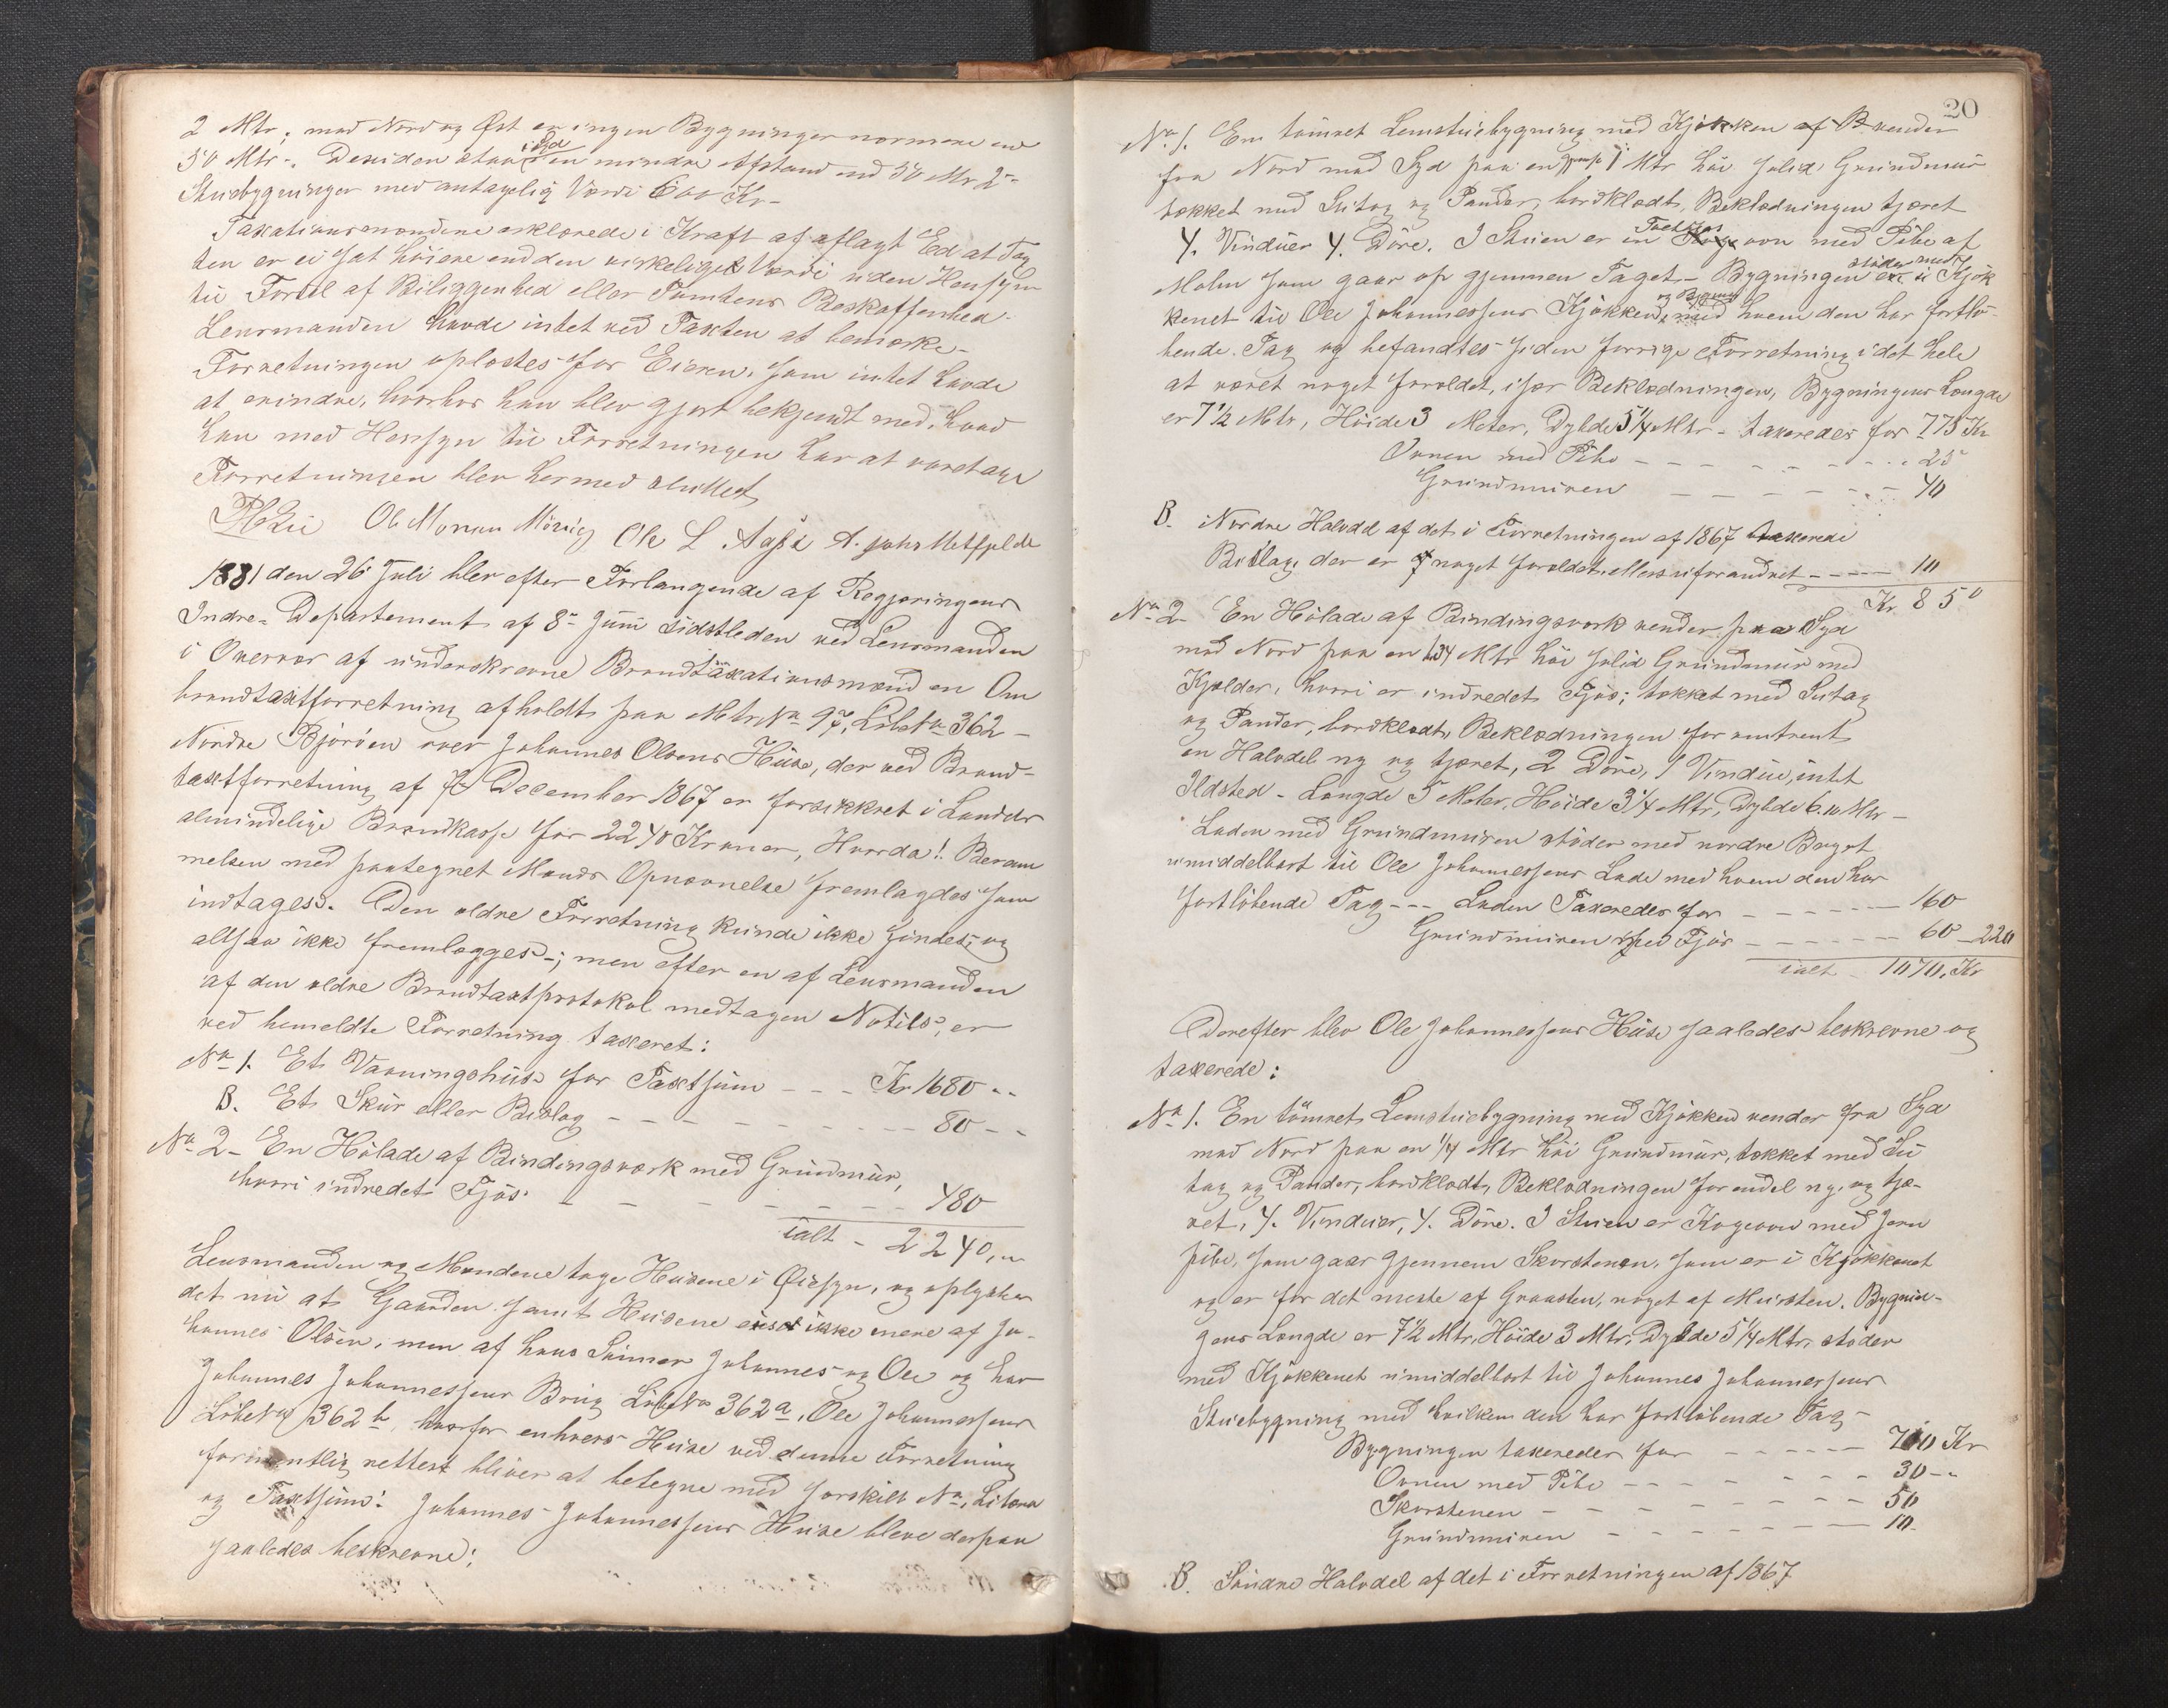 2 Mtr; mod Nord og Øst er ingen Bygninger nærmere end
50 Mtr-. Desuden staar i Syd en mindre Afstand end 50 Mtr 2de
Stuebygninger med antagelig Værdi 600 Kr-
Taxationsmændene erklærede i Kraft af aflagt Ed at Tax
ten er ei sat höiere end den virkelige Værdi uden Hensyn
til Fordel af Biliggenhed eller Tomtens Beskaffenhed.
Lensmanden havde intet ved Taxten at bemærke-
Forretningen oplæstes for Eieren, som intet havde
at erindre, hvorhos han blev gjort bekjendt med, hvad
han med Hensyn til Forretningen har at varetage
Forretningen blev hermed sluttet
Ole Monsen Ole L Aga
1881 den 26 Juli blev efter Forlangende af Regjeringens
Indre-Departement af 8de Juni sidstleden ved Lensmanden
i Overvær af underskrevne Brandtaxationsmænd en Om
brandtaxtforretning afholdt paa Mtr Nr 97, Löbe Nr 362 -
Nordre Björöen over Johannes Olsens Huse, der ved Brand-
taxtforretning af December 1867 er forsikkret i Landets
almindelige Brandkasse for 2240 Kroner, Hvorda! Beram
melsen med paategnet Mænds Opnævnelse fremlagdes som
indtages. Den ældre Forretning kunde ikke findes; og
altsaa ikke fremlægges-; men efter en af Lensmanden
af den ældre Brandtaxtprotokol medtagen Notits, er
ved bemeldte Forretning taxeret:
No 1. Et Vaaningshus for Taxtsum - - - Kr 1680 - -
B. Et Skur eller Bislag - - - - - - - - 80 - -
No 2- En Hölade af Bindingsværk med Grundmur,
hvori indredet Fjös - - - - - - - - 480
ialt - 2240,
Lensmanden og Mændene toge Husene i Öiesyn, og oplystes
det nu at Gaarden samt Husene eies ikke mere af Jo-
hannes Olsen, men af hans Sönner Johannes og Ole og har
Johannes Johannessens Brug Löbe Nr 362a, Ole Johannessens
Löbe Nr 362b, hvorfor enhvers Huse ved denne Forretning
formentlig rettest bliver at betegne med forskilt No, Litera
og Taxtsum: Johannes Johannessens Huse bleve derpaa
saaledes beskrevne:
20
No 1. En tömret Lemstuebygning med Kjökken vender
fra Nord mod Syd paa en 1 Mtr höi solid Grundmur
tækket med Sutag og Pander, bordklædt, Beklædningen tjæret
4. Vinduer 4. Döre. I Stuen er en ovn med Pibe af
Malm som gaar op gjennem Taget- Bygningen stöder med Kjök
kenet til Ole Johannessens Kjökken, med hvem den har fortlö-
bende. Tag og befandtes siden forrige Forretning i det hele
at været noget foroldet, især Beklædningen, Bygningens Længde
er 7 1/2 Mtr, Höide 3 Meter, Dybde 5 1/4 Mtr - taxeredes for 775 Kr
Ovnen med Pibe - - - - - - - - - 25
Grundmuren - - - - - - - 40
B. Nordre Halvdel af det i Forretningen af 1867 taxerede
Bislag, der er noget foroldet, ellers uforandret - - - - 10
Kr 850
No 2- En Hölade af Bindingsværk vender fra Syd
mod Nord paa en Mtr höi solid Grundmur med
Kjælder, hvori er indredet Fjös; tækket med Sutag
og Pander, bordklædt, Beklædningen for omtrent
en Halvdel ny og tjæret, 2 Döre, 1 Vindue, intet
Ildsted - Længde 5 Meter, Höide 3 1/4 Mtr, Dybde 6.10 Mtr -
Laden med Grundmuren stöder med nordre Bryst
umiddelbart til Ole Johannessens Lade med hvem den har
fortlöbende Tag - - - Laden Taxeredes for - - - - - - 160
Grundmuren med Fjös - - - - - - - 60 - 220
ialt - 1070, Kr
Derefter blev Ole Johannessens Huse saaledes beskrevne og
taxerede:
No 1. En tömret Lemstuebygning med Kjökken vender fra Syd
mod Nord paa en 1/4 Mtr höi Grundmur, tækket med Su
tag og Pander, bordklædt, Beklædningen for endel ny og tjæ-
ret, 4. Vinduer, 4. Döre. I Stuen er Kogeovn med Jern
pibe, som gaar gjennem Skorstenen, som er i Kjökkenet
og er for det meste af Graasten, noget af Mursten. Bygnin-
gens Længde er 7 1/2 Mtr, Höide 3 Mtr, Dybde 5 1/4 Mtr, stöder
med Kjökkenet umiddelbart til Johannes Johannessens
Stuebygning med hvilken den har fortlöbende Tag -
Bygningen taxeredes for - - - - - - 700 Kr
Ovnen med Pibe - - - - - - - - 30 - -
Skorstenen - - - - - - - - - 50
Grundmuren - - - - - - - - 10.
B. Söndre Halvdel af det i Forretningen af 1867